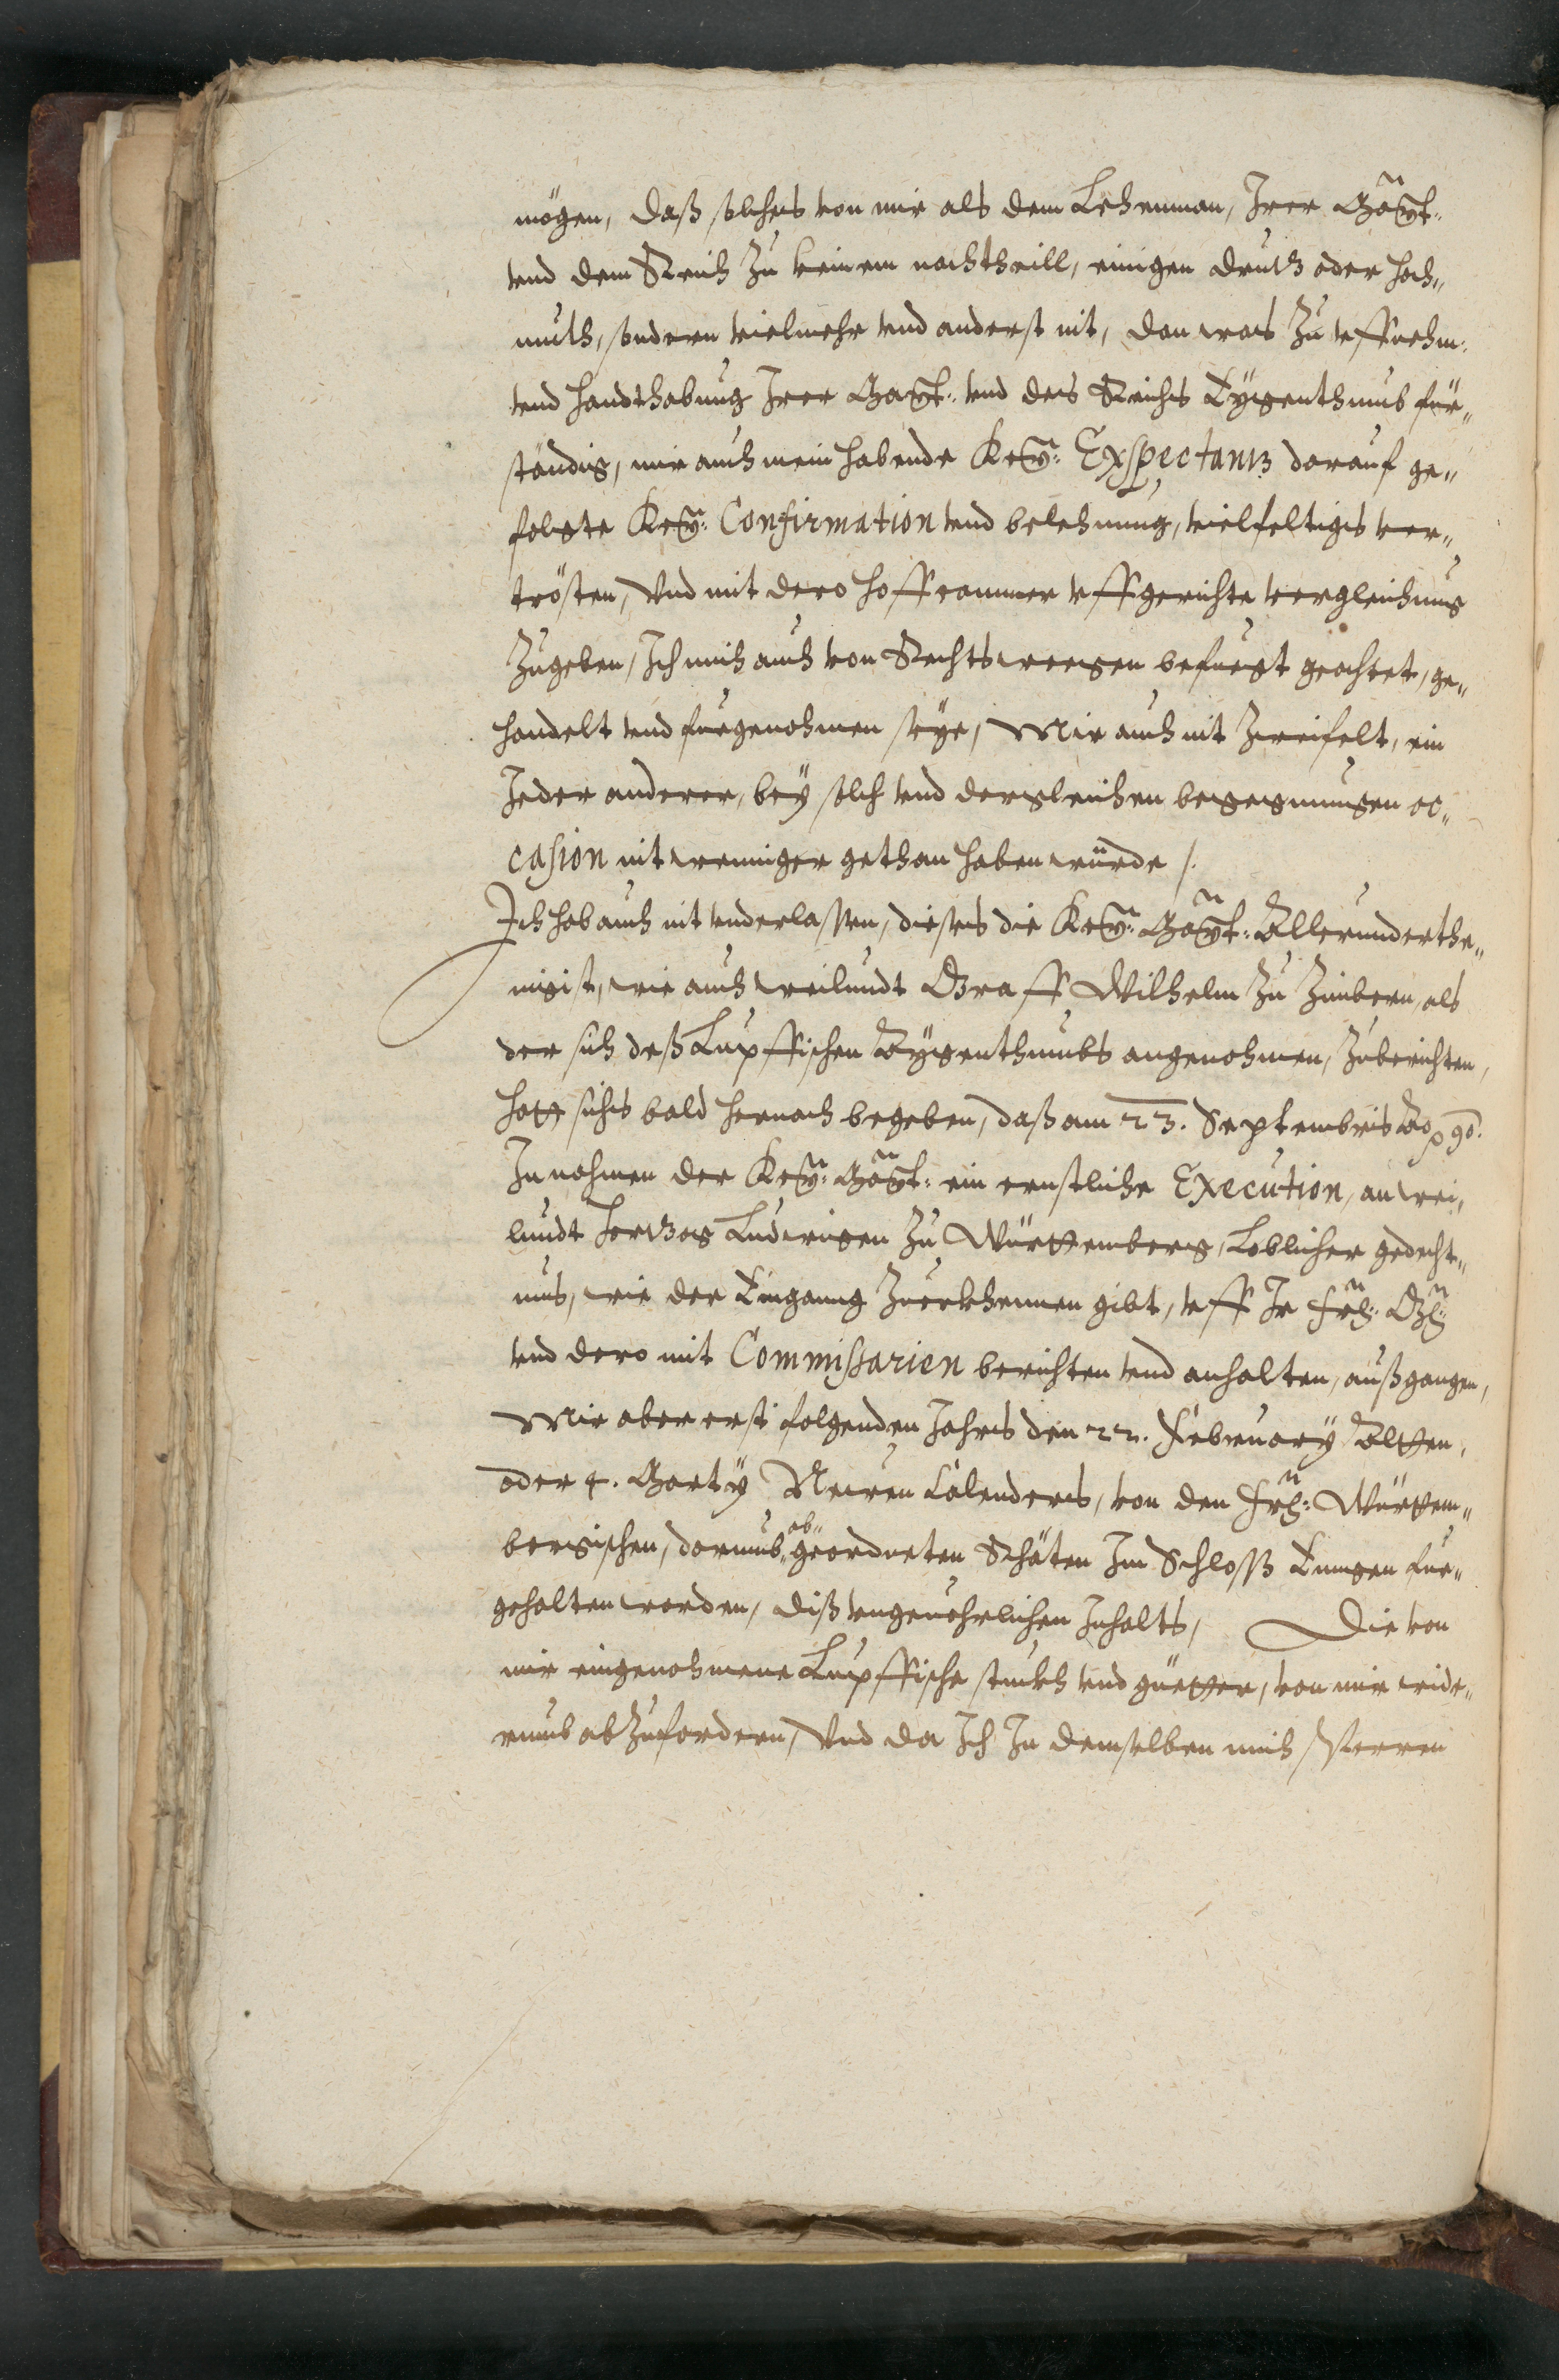 mögen, daß solches von mir als dem Lehenman, Irer Mayt:
vnd dem Reich zu keinem nachtheill, einigen drutz oder hoch„
muth, sondern vielmehr vnd anderst nit, dan was zu vffnehm:
vnd handthabung Irer Mayt: vnd des Reichs Eÿgenthumb für„
ständig, mir auch mein habende Key: Exspectantz darauf ge„
folgte Key: Confirmation vnd belehnung, vielfeltigs ver„
trösten, Vnd mit dero hoffcammer vffgerichte vergleichung
Zugeben, Ich mich auch von Rechts wegen befuegt geachtet, ge„
handelt vnd fürgenohmen seye, Mir auch nit zweifelt, ein
Jeder anderer, beÿ solch vnd dergleichen begegnungen oc„
casion nit weniger gethan haben würde /.
Ich hab auch nit vnderlassen, dieses die Key: Mayt: Allerunderthe„
nigist, wie auch weilundt Graff Wilhelm zu Zimbern, als
der sich deß Lupffischen Eÿgenthumbs angenohmen, Zuberichten,
hatt sichs bald hernach begeben, daß am 23. Septembris Ao 90.
In nahmen der Key: Mayt: ein ernstliche Execution, an wei„
lundt Hertzog Ludwigen zu Württemberg, Loblicher gedecht„
nus, wie der Eingang Zuerkhennen gibt, vff Ir Frl: Gn:
vnd dero mit Commissarien berichten vnd anhalten, außgangen,
Mir aber erst folgenden Jahrs den 22. Februarÿ Alten,
oder 4. Martÿ Newen Calenders, von den Frl: Württem„
bergischen, darumb„ ab„geordneten Räthen Im Schloß Enngen für„
gehalten worden, diß vngeuehrlichen Inhalts, Die von
mir eingenohmene Lupffische stuckh vnd güetter, von mir wide„
rumb abZufordern, Vnd da Ich In demselben mich sperren